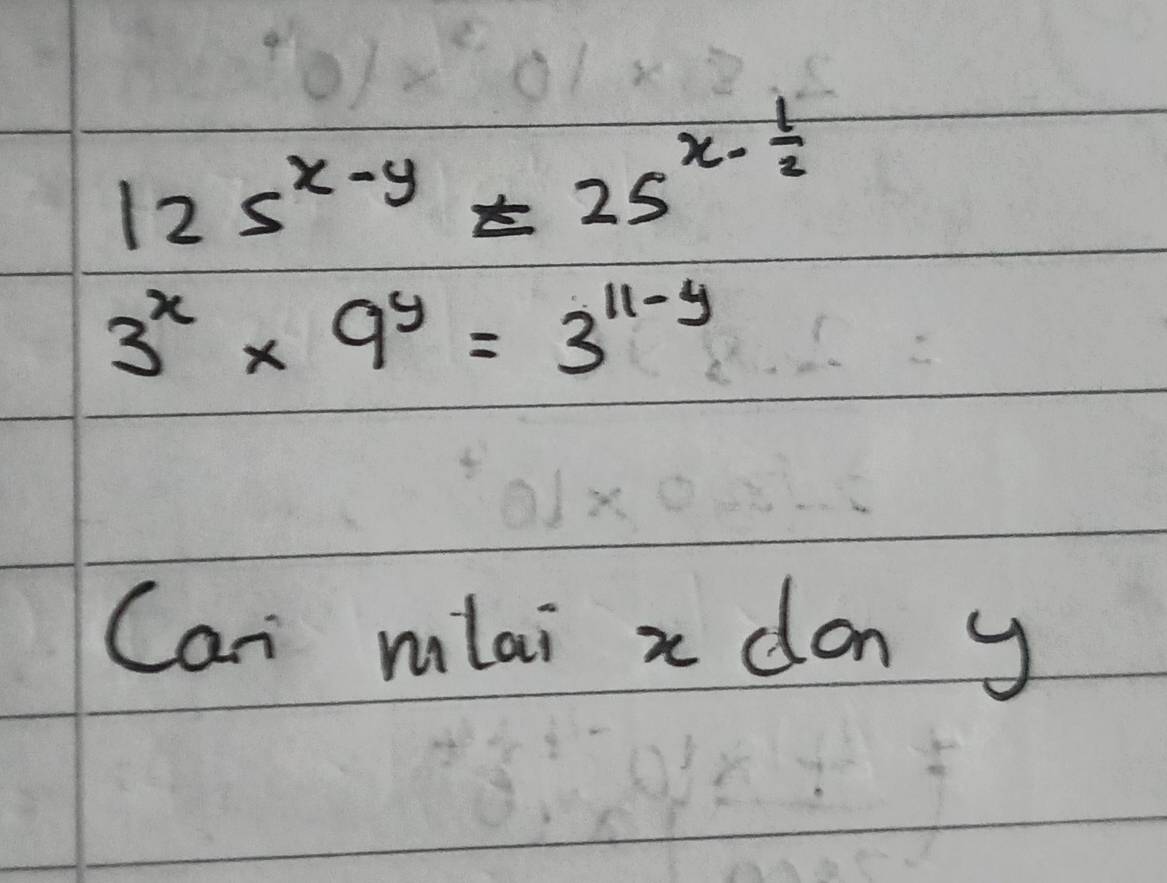 125^{x-y} = 25^{x-\frac{1}{2}}
3^x × 9^y = 3^{11-y}
Cari nilai x dan y